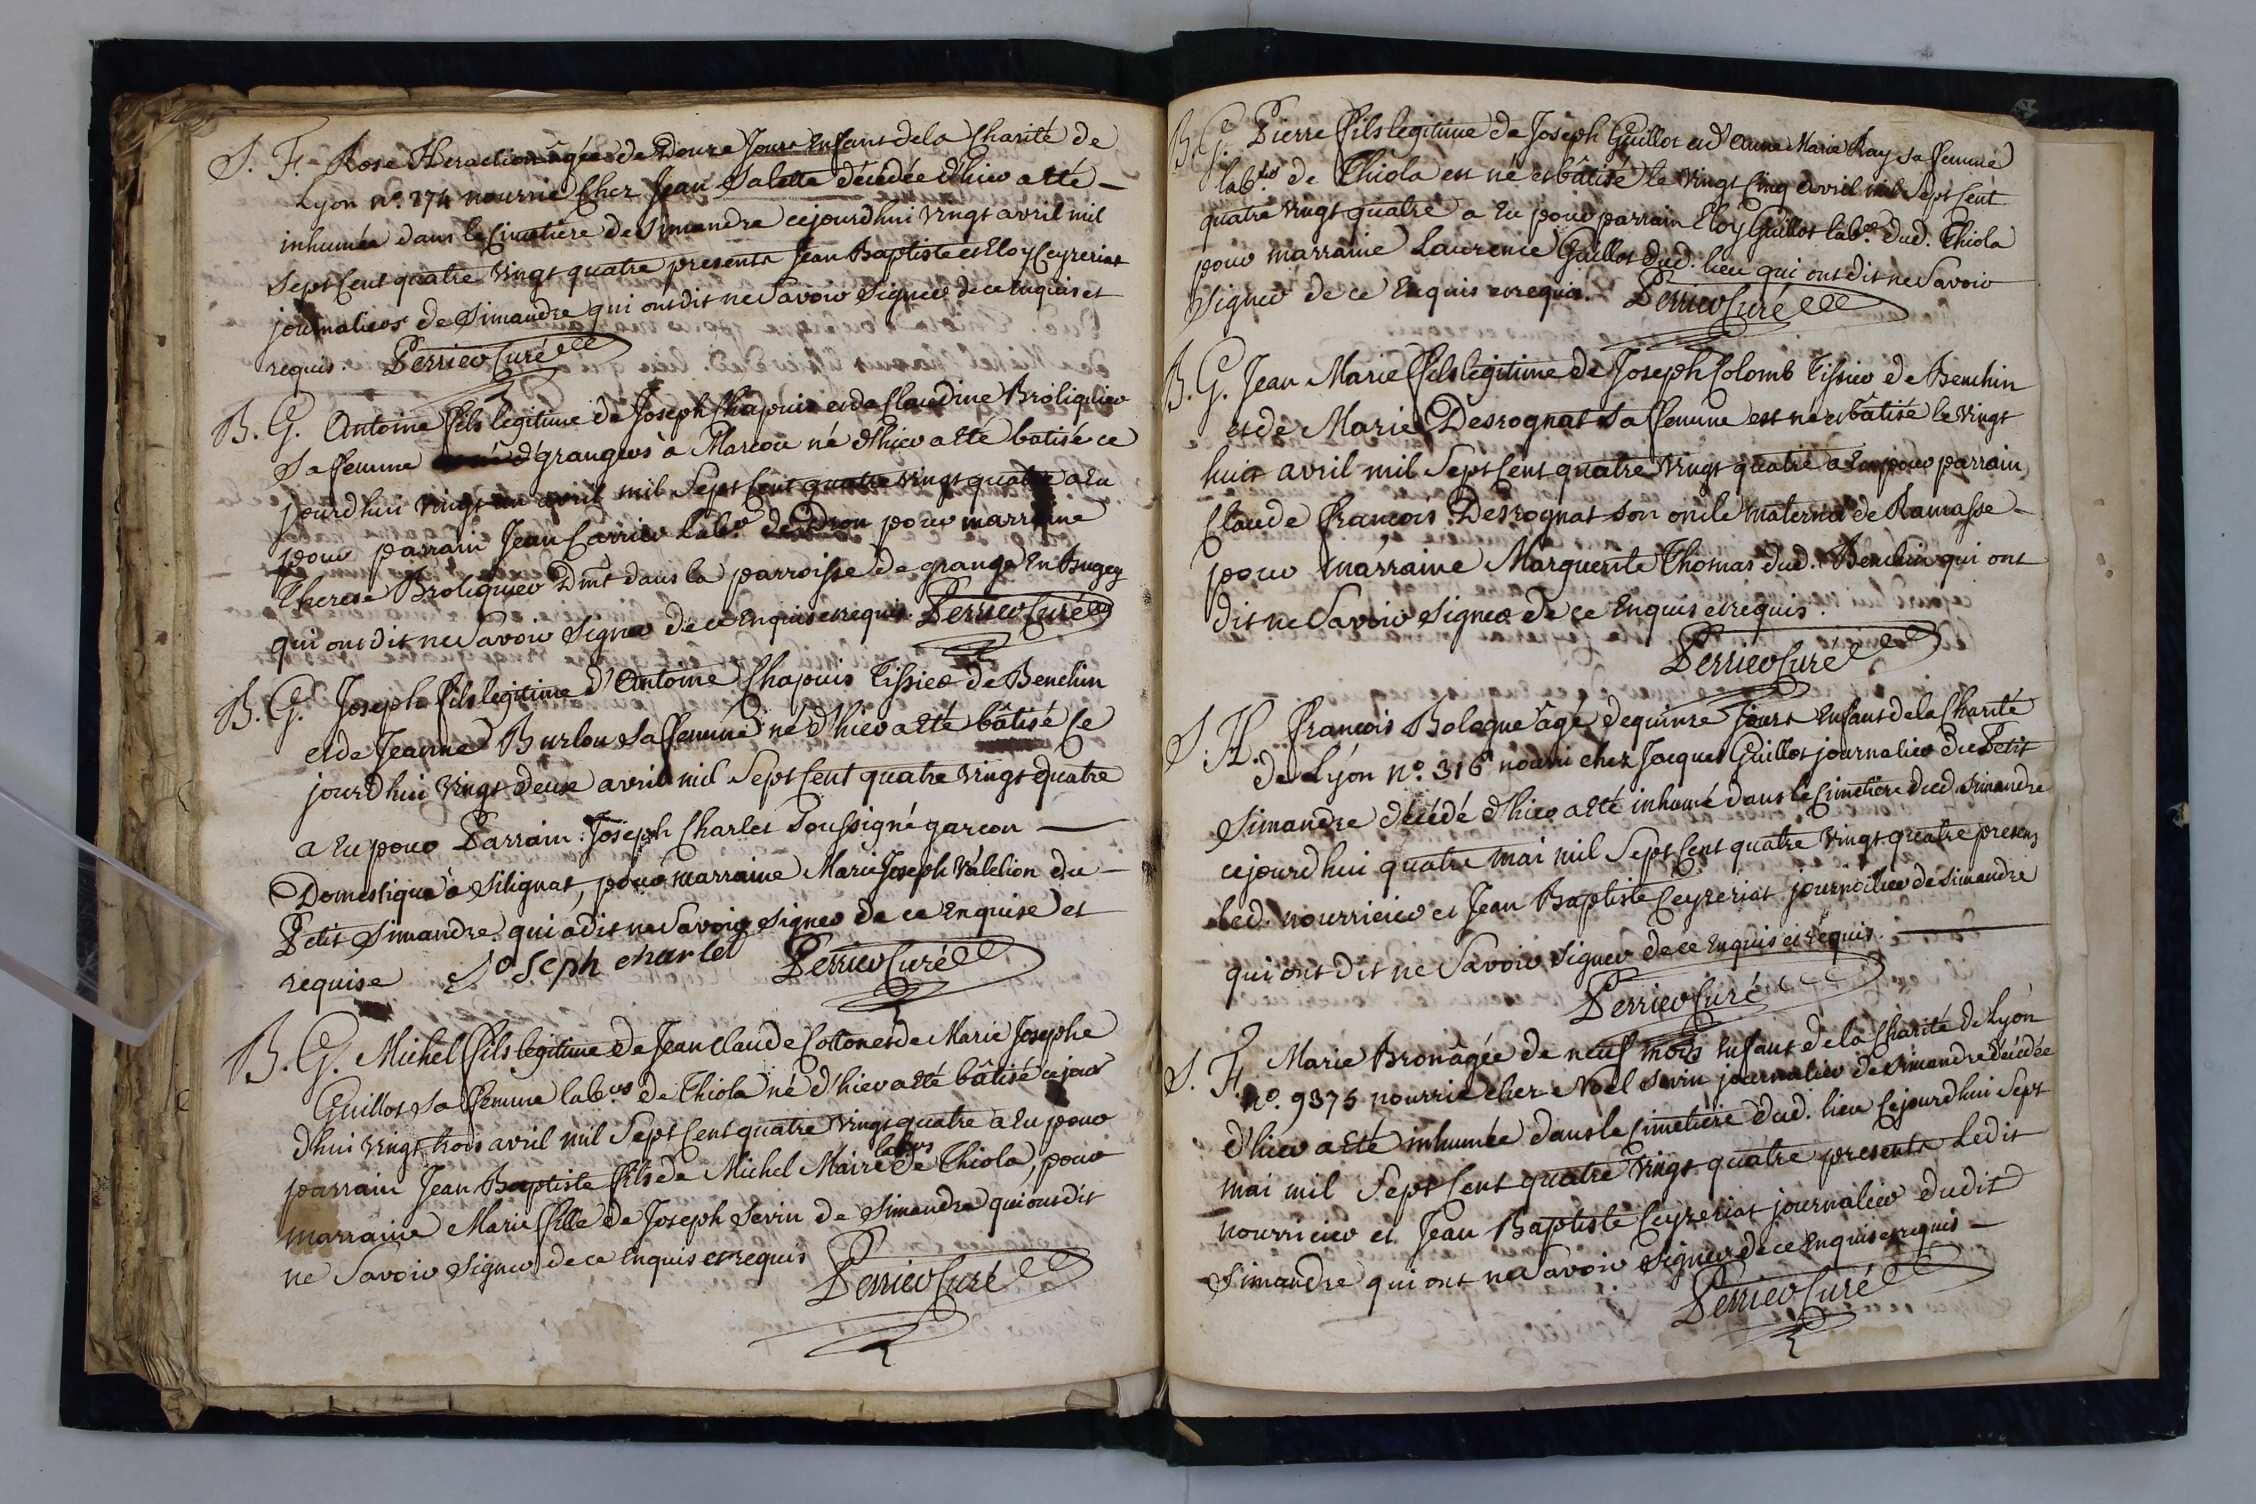 S. F. Rose Heraction âgée de Douze Jours Enfant de la Charité de
Lyon n°. 274 nourrie Chez Jean Salette décédée d'hier a été
inhumée dans le Cimetiere de Simandre cejourdhui vingt avril mil
sept Cent quatre vingt quatre presents Jean Baptiste et Eloy Ceyzeriat
journaliers de Simandre qui ont dit ne Savoir signer de ce enquis et
requis. Perrier Curé
B. G. Antoine fils legitime de Joseph Chapuis et de Claudine Broliquier
sa femme grangers à Marcou né d'hier a été batisé ce
jourdhui vingt un avril mil Sept Cent quatre vingt quatre a Eu
pour parrain Jean Carrier lab.r de Dron pour marraine
Therese Broliquier Dmt dans la parroisse de grange En Bugey
qui ont dit ne Savoir signer de ce Enquis et requis. Perrier Curé
B. G. Joseph fils legitime d'Antoine Chapuis Tissier de Benchin
et de Jeanne Burlon sa femme né d'hier a été bâtisé Ce
jourdhui vingt deux avril mil Sept Cent quatre vingt quatre
a Eu pour Parrain Joseph Charles Soussigné garcon
Domestique à Silignat, pour marraine Marie Joseph Valelion du
Petit Simandre qui a dit ne Savoir signer de ce Enquise et
requise Joseph charlet Perrier Curé
B. G. Michel fils legitime de Jean Claude Cotton et de Marie Josephe
Guillot sa femme lab.rs de Thiola né d'hier a été bâtisé cejour
dhui vingt trois avril mil Sept Cent quatre vingt quatre a Eu pour
parrain Jean Baptiste fils de Michel Maire labrs de Thiola, pour
marraine Marie fille de Joseph Sevin de Simandre qui ont dit
ne Savoir signer de ce Enquis et requis Perrier Curé
B. G. Pierre fils legitime de Joseph Guillot et d'Anne Marie Ray sa femme
lab.rs de Thiola est né et bâtisé le vingt Cinq avril mil Sept Cent
quatre vingt quatre a Eu pour parrain Eloy Guillot lab.r dud. Thiola
pour marraine Laurence Guillot dud. lieu qui ont dit ne Savoir
signer de ce Enquis et requis. Perrier Curé
B. G. Jean Marie fils legitime de Joseph Colomb Tissier de Benchin
et de Marie Desrognat sa femme est né et bâtisé le vingt
huit avril mil Sept Cent quatre vingt quatre a Eu pour parrain
Claude françois Desrognat son oncle maternel de Ramasse
pour marraine Marguerite Thomas dud. Benchin qui ont
dit ne Savoir signer de ce Enquis et requis.
Perrier Curé
S. H. françois Bologne âgé de quinze jours Enfant de la Charité
de Lyon n°. 316 nourri chez Jacques Guillot journalier du Petit
Simandre décédé d'hier a été inhumé dans le Cimetiere dud. Simandre
cejourdhui quatre mai mil Sept Cent quatre vingt quatre presens
led. nourricier et Jean Baptiste Ceyzeriat journalier de Simandre
qui ont dit ne Savoir signer de ce Enquis et requis.
Perrier Curé
S. F. Marie Bron âgée de neuf mois Enfant de la Charité de Lyon
n°. 9375 nourrie chez Noel Sevin journalier de Simandre décédée
d'hier a été inhumée dans le Cimetiere dud. lieu Cejourdhui Sept
mai mil Sept Cent quatre vingt quatre presents Ledit
nourricier et Jean Baptiste Ceyzeriat journalier dudit
Simandre qui ont ne Savoir signer de ce Enquis et requis
Perrier Curé